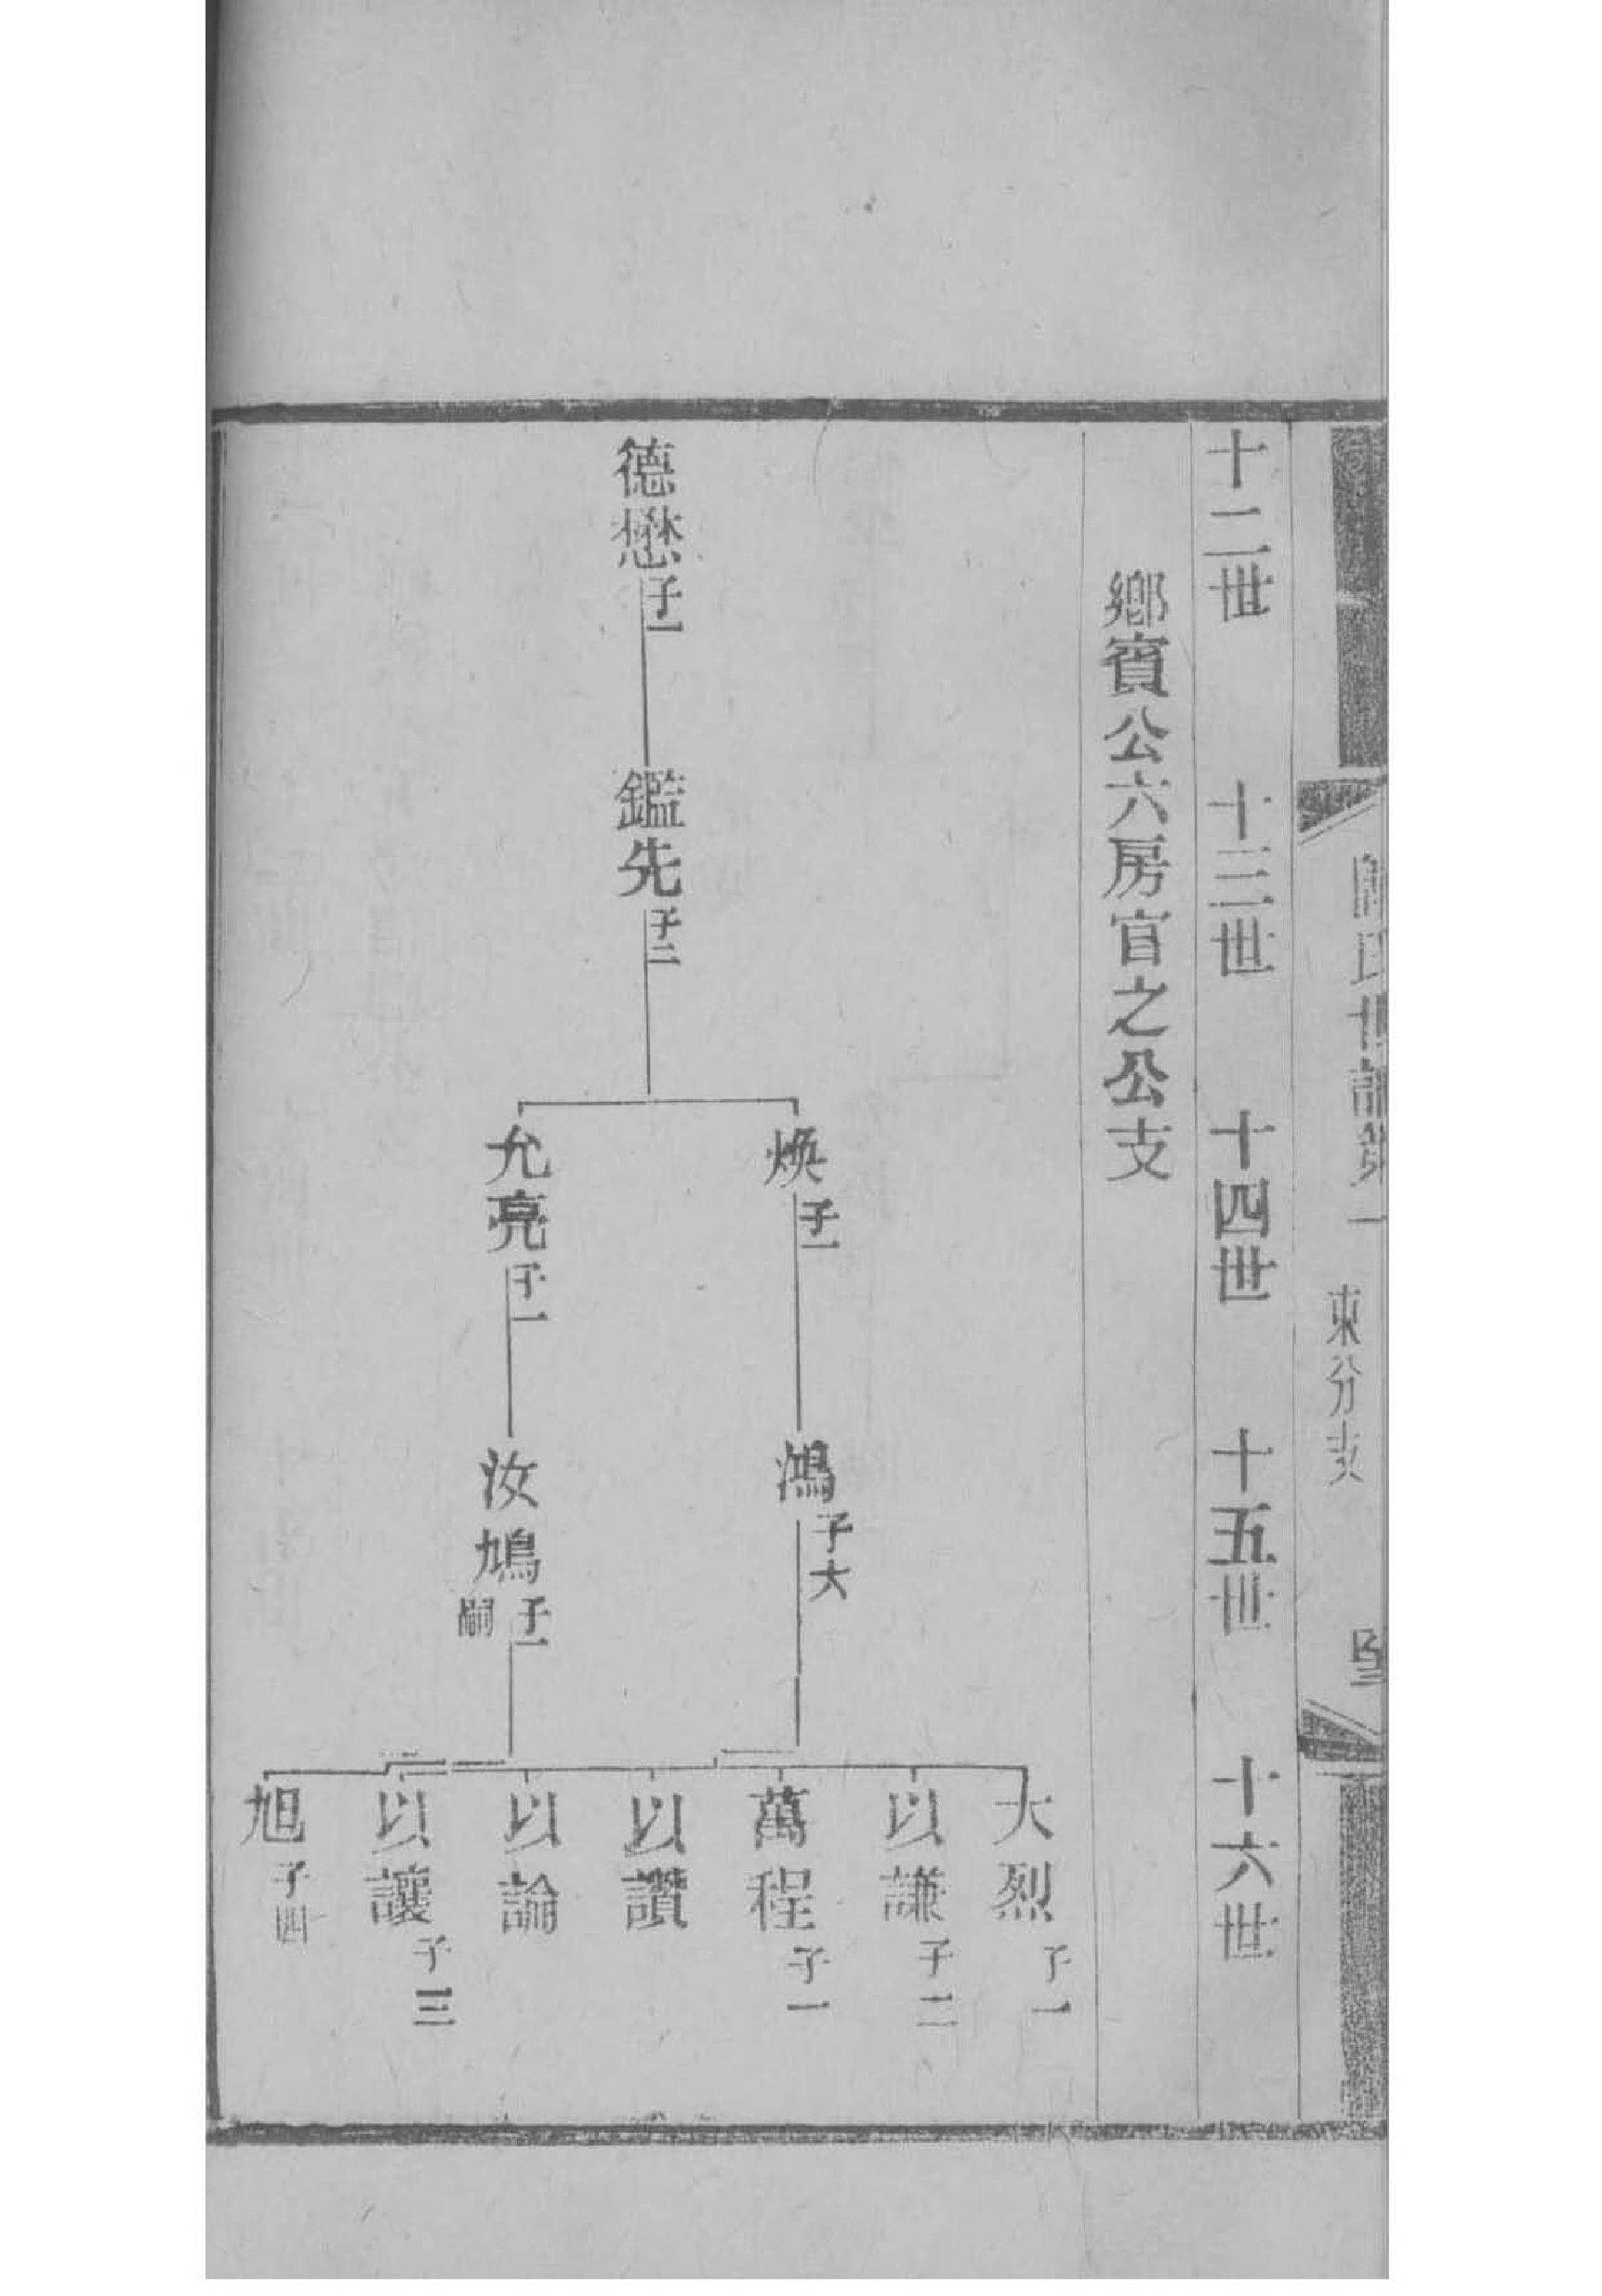 氏世譜第一
東分支
十二世
十三世
十四世
十五世
十六世
鄉賓公六房官之公支
德懋子一
鑑先子二
煥子一
允亮子一
鴻子大
汝鳩子一
嗣
大烈子一
以謙子二
萬程子一
以讚
以論
以讓子三
旭子四